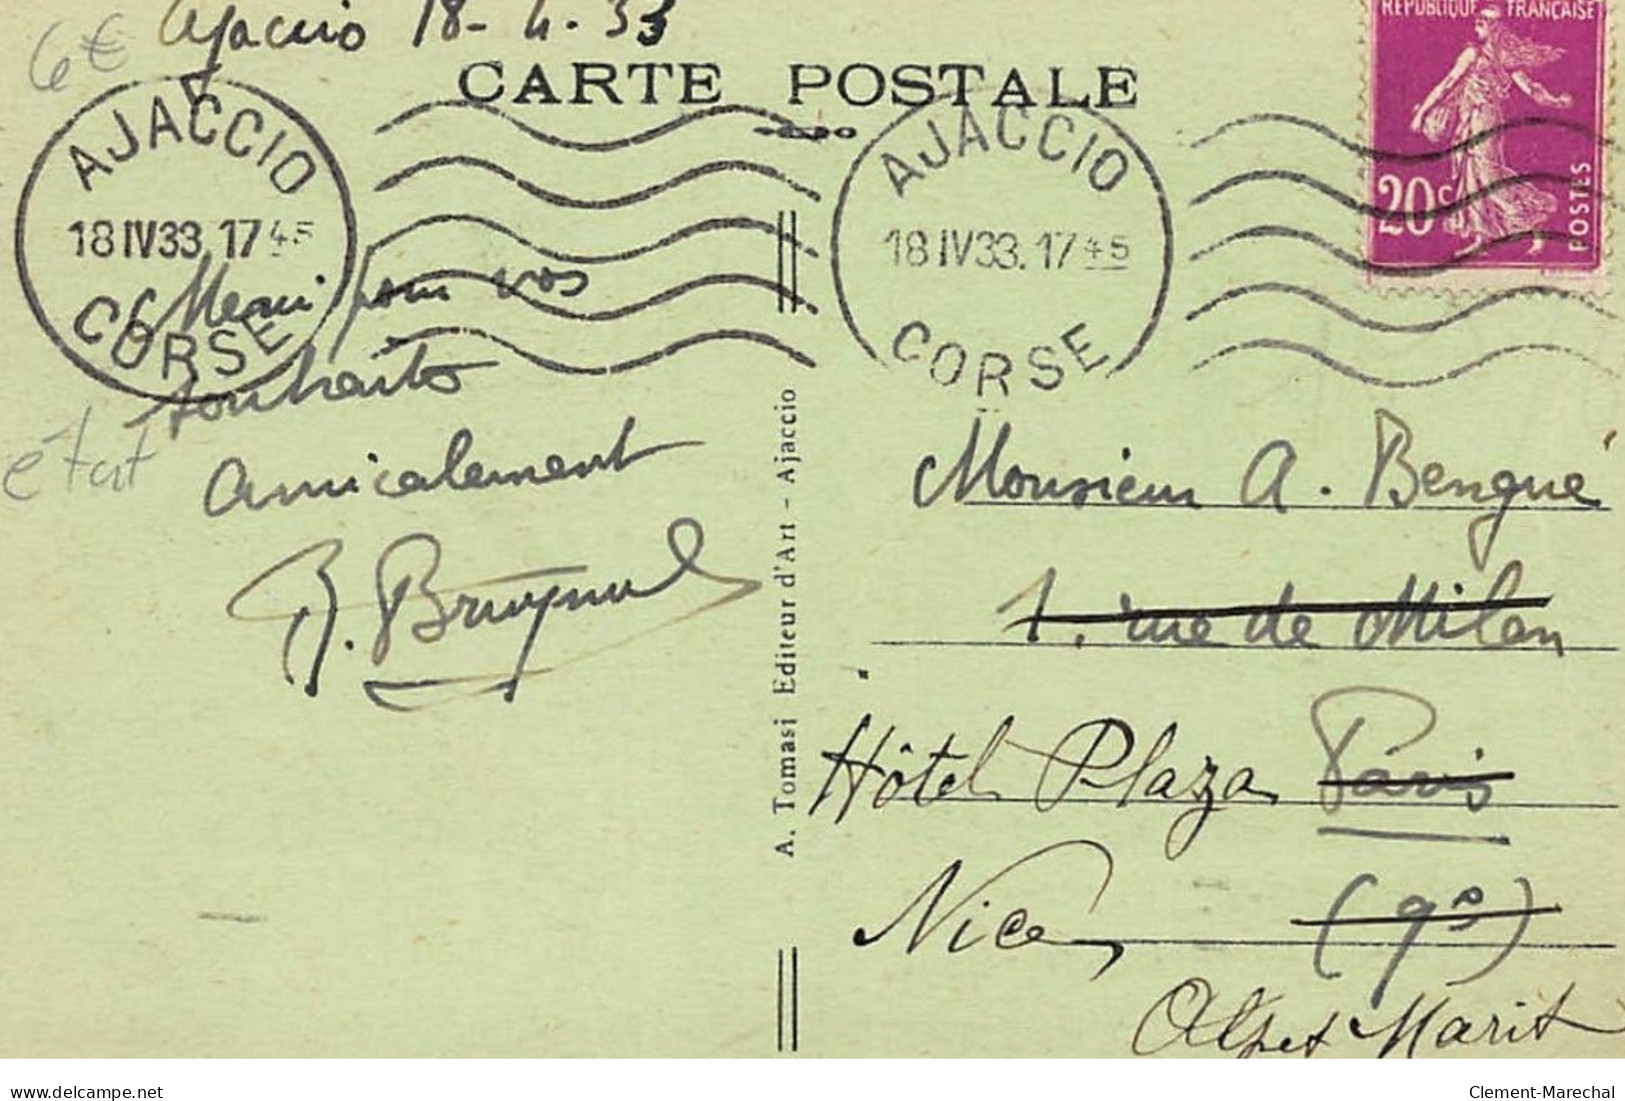 6€
Ajaccio 18-4-33
CARTE POSTALE
REPUBLIQUE FRANÇAISE
20c
POSTES
AJACCIO
18 IV 33. 17 45
CORSE
AJACCIO
18 IV 33. 17 45
CORSE
Merci pour vos
souhaits
état
Amicalement
A. Tomasi Editeur d'Art - Ajaccio
Monsieur A. Bengué
1. rue de Milan
Hôtel Plaza Paris
Nice (9e)
Alpes Marit
www.delcampe.net
Clement-Marechal